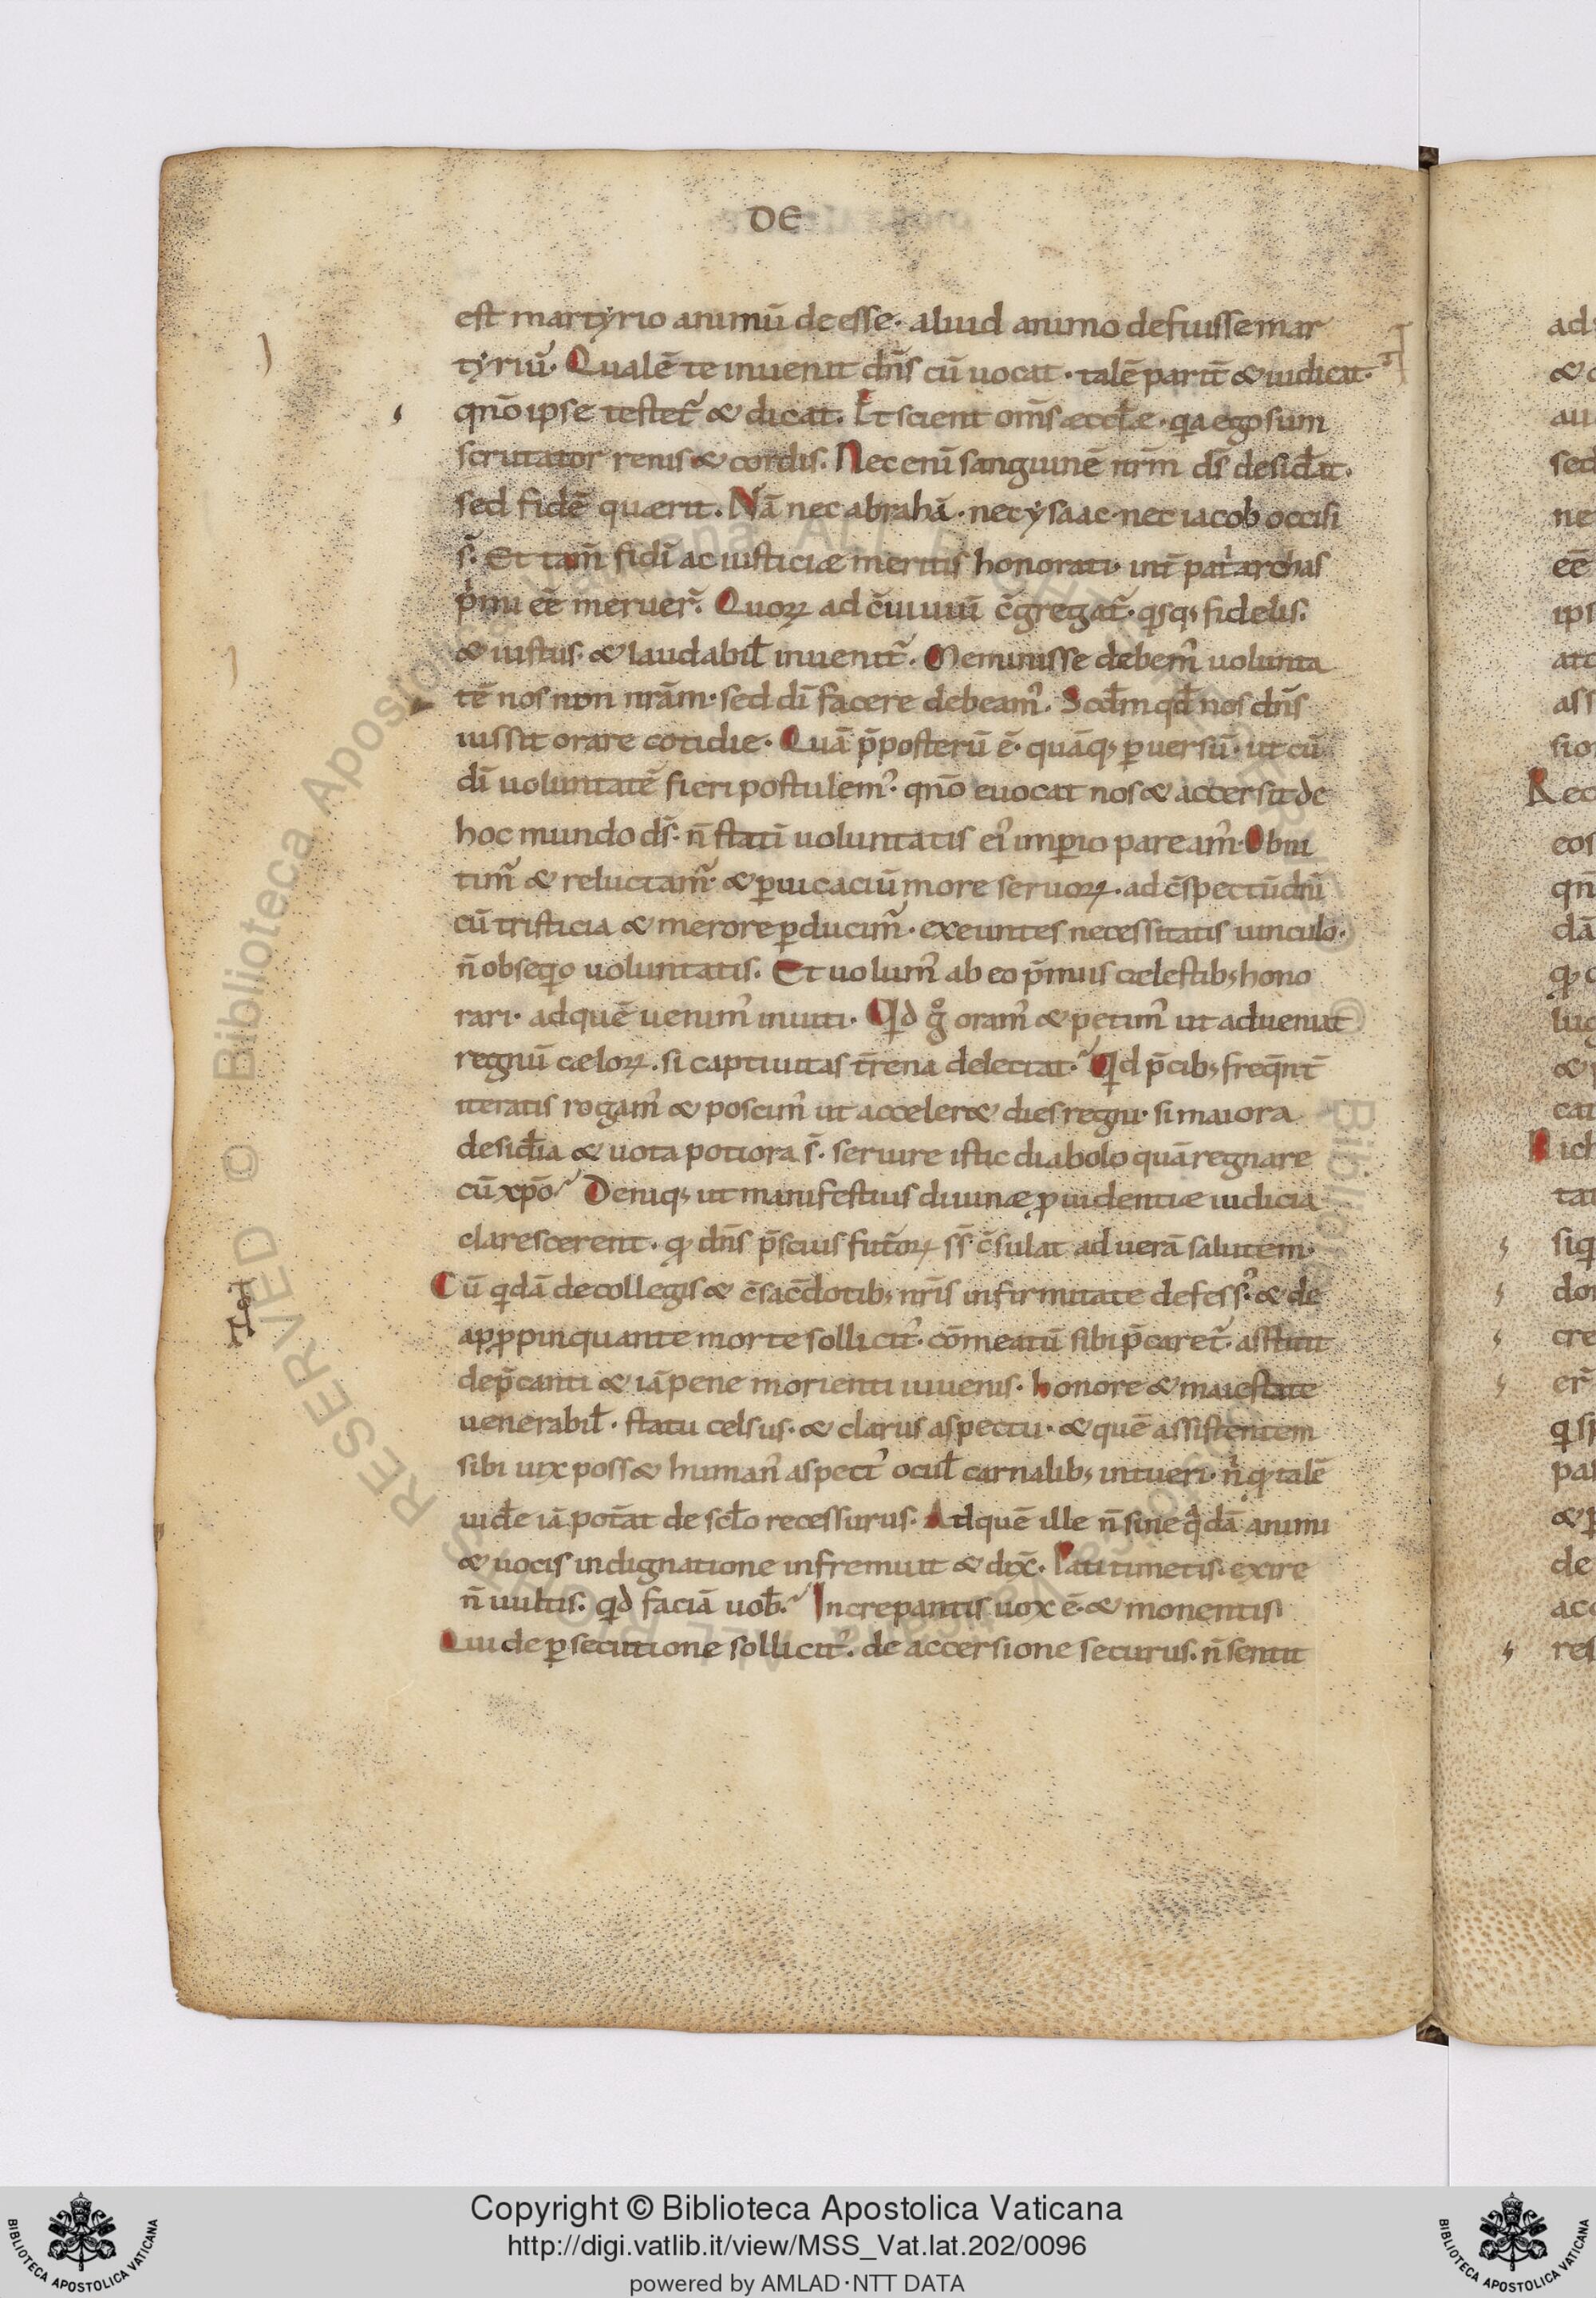 DE
est martyrio animū deesse· aliud animo defuisse mar
tyriū· Qualē te inuenit dn̄s cū uocat· talē parit̄ & iudicat·
qn̄o ipse testet᷑ & dicat. Et scient om̄s æccłæ· q̣a ego sum
scrutator renis & cordis. Nec eni᷑ sanguinē nr̄m d̄s desid̄at·
sed fidē quærit. Nā nec abrahā· nec ysaac· nec iacob occisi
s̄. Et tam̄ fidi᷑ ac iusticiæ meritis honorati· int̄ pat᷑archas
p᷑mi eē meruer᷑. Quoꝝ ad c̄uiuiū c̄gregat᷑· q̣sq; fidelis.
& iustus· & laudabił inuenit᷑. Meminisse debem᷒ uolunta
tē nos non nrām· sed dī facere debeam᷒. Scd̄m qđ nos dn̄s
iussit orare cotidie· Quā p̄posterū ē· quāq; ꝑuersū· ut cū
dī uoluntatē fieri postulem᷒· qn̄o euocat nos & accersit de
hoc mundo d̄s· n̄ statī uoluntatis ei᷒ imꝑio paream᷒· Obni
tim᷑ & reluctam᷑· & ꝑuicaciū more seruoꝝ. ad c̄spectū dn̄i
cū tristicia & merore ꝑducim᷑· exeuntes necessitatis uinculo·
n̄ obseq̣o uoluntatis. Et uolum᷒ ab eo p̄miis cælestib; hono
rari· ad quē uenim᷒ inuiti· Q̣d g̊ oram᷒ & petim᷒ ut adueniat
regnū cæloꝝ. si captiuitas t̄rena delectat·᷑ Q̣d p̄cib; freq̄nt̄
iteratis rogam᷒ & poscim᷒ ut acceler& dies regni· si maiora
desid̄ia & uota potiora s̄· seruire istic diabolo quā regnare
cū xp̄o᷑ Deniq; ut manifestius diuinæ ꝓuidentiæ iudicia
clarescerent· q̣ dn̄s p̄scius fut᷑oꝝ ss̄ c̄sulat ad uerā salutem·
Cū q̣dā de collegis & c̄sac̄dotib; nr̄is infirmitate defess᷒· & de
apꝓpinquante morte sollicit᷒· cōmeatū sibi p̄caret᷑· asstitit
dep̄canti & iā pene morienti iuuenis· honore & maiestate
uenerabił· statu celsus· & clarus aspectu· & quē assistentem
sibi uix poss& human᷒ aspect᷒ ocuł carnalib; intueri· n᷑ q̣ talē
uid̄e iā pot̄at de scło recessurus. Ad quē ille n̄ sine q̣dā animi
& uocis indignatione infremuit & dix̄· Pati timetis· exire
n̄ uultis. q̣d faciā uob̄·᷑ Increpantis uox ē· & monentis·
Qui de ꝑsecutione sollicit᷒. de accersione securus. n̄ sentit
Copyright © Biblioteca Apostolica Vaticana
http://digi.vatlib.it/view/MSS_Vat.lat.202/0096
powered by AMLAD·NTT DATA